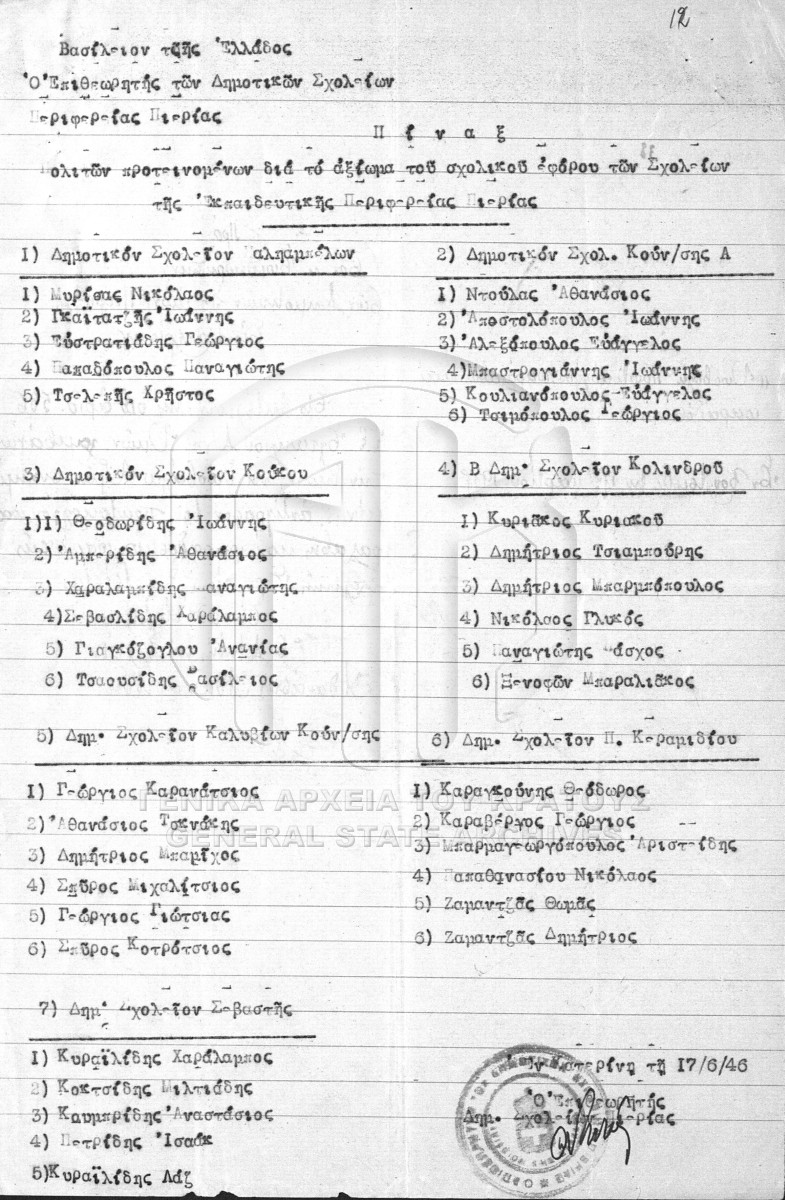 12
Βασίλειον τζῆς Ἑλλάδος
Ὁ Ἐπιθεωρητής τῶν Δημοτικῶν Σχολείων
Περιφερείας Πιερίας
Π ί ν α ξ
Πολιτῶν προτεινομένων διά τό ἀξίωμα τοῦ σχολικοῦ ἐφόρου τῶν Σχολείων
τῆς Ἐκπαιδευτικῆς Περιφερείας Πιερίας
1) Δημοτικόν Σχολεῖον Καληαμπέλων
1) Μυρίσας Νικόλαος
2) Γκαϊτατζῆς Ἰωάννης
3) Εὐστρατιάδης Γεώργιος
4) Παπαδόπουλος Παναγιώτης
5) Τσελεπῆς Χρῆστος
2) Δημοτικόν Σχολ. Κούν/σης Α
1) Ντούλας Ἀθανάσιος
2) Ἀποστολόπουλος Ἰωάννης
3) Ἀλεξόπουλος Εὐάγγελος
4) Μπαστρογιάννης Ἰωάννης
5) Κουλιανόπουλος Εὐάγγελος
6) Τσιμόπουλος Γεώργιος
3) Δημοτικόν Σχολεῖον Κούκου
1)1) Θεοδωρίδης Ἰωάννης
2) Ἀμπερίδης Ἀθανάσιος
3) Χαραλαμπίδης Παναγιώτης
4) Σεβασλίδης Χαράλαμπος
5) Γιαγκόζογλου Ἀνανίας
6) Τσαουσίδης Βασίλειος
4) Β Δημ. Σχολεῖον Κολινδροῦ
1) Κυριᾶκος Κυριακοῦ
2) Δημήτριος Τσιαμπούρης
3) Δημήτριος Μπαρμπόπουλος
4) Νικόλαος Γλυκός
5) Παναγιώτης Βάσχος
6) Ξενοφῶν Μπαραλιᾶκος
5) Δημ. Σχολεῖον Καλυβίων Κούν/σης
1) Γεώργιος Καρανάτσιος
2) Ἀθανάσιος Τσκνάκης
3) Δημήτριος Μπαμῖχος
4) Σπῦρος Μιχαλίτσιος
5) Γεώργιος Γιώτσιας
6) Σπῦρος Κοτρότσιος
6) Δημ. Σχολεῖον Π. Κεραμιδίου
1) Καραγκούνης Θεόδωρος
2) Καραβέργος Γεώργιος
3) Μπαρμαγεωργόπουλος Ἀριστείδης
4) Παπαθανασίου Νικόλαος
5) Ζαμαντζᾶς Θωμᾶς
6) Ζαμαντζᾶς Δημήτριος
ΓΕΝΙΚΑ ΑΡΧΕΙΑ ΤΟΥ ΚΡΑΤΟΥΣ
GENERAL STATE ARCHIVES
7) Δημ. Σχολεῖον Σεβαστῆς
1) Κυραϊλίδης Χαράλαμπος
2) Κοκτσίδης Μιλτιάδης
3) Κουμπρίδης Ἀναστάσιος
4) Πετρίδης Ἰσαάκ
5) Κυραϊλίδης Λάζ
Ἐν Κατερίνῃ τῇ 17/6/46
Ὁ Ἐπιθεωρητής
Δημ. Σχολείων Πιερίας